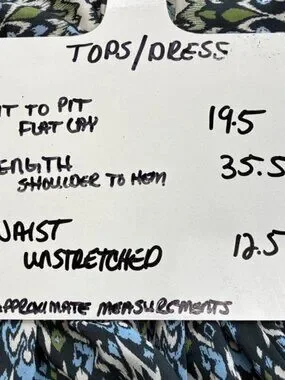 TOPS/DRESS
IT TO PIT
FLAT LAY 19.5
ENGTH
SHOULDER TO HEM 35.5
WAIST
UNSTRETCHED 12.5
APPROXIMATE MEASUREMENTS